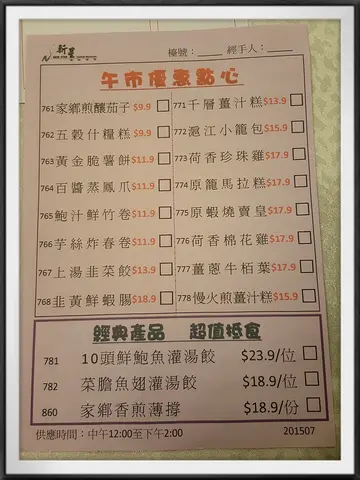 新星 檯號：_____ 經手人：_____
NEW STAR
午市優惠點心
761 家鄉煎釀茄子 $9.9
762 五穀什糧糕 $9.9
763 黃金脆薯餅 $11.9
764 百醬蒸鳳爪 $11.9
765 鮑汁鮮竹卷 $11.9
766 芋絲炸春卷 $11.9
767 上湯韭菜餃 $13.9
768 韭黃鮮蝦腸 $18.9
771 千層薑汁糕 $13.9
772 滬江小籠包 $15.9
773 荷香珍珠雞 $17.9
774 原籠馬拉糕 $17.9
775 原蝦燒賣皇 $17.9
776 荷香棉花雞 $17.9
777 薑蔥牛栢葉 $17.9
778 慢火煎薑汁糕 $15.9
經典產品 超值抵食
781 10頭鮮鮑魚灌湯餃 $23.9/位
782 菜膽魚翅灌湯餃 $18.9/位
860 家鄉香煎薄撐 $18.9/份
供應時間：中午12:00至下午2:00 201507